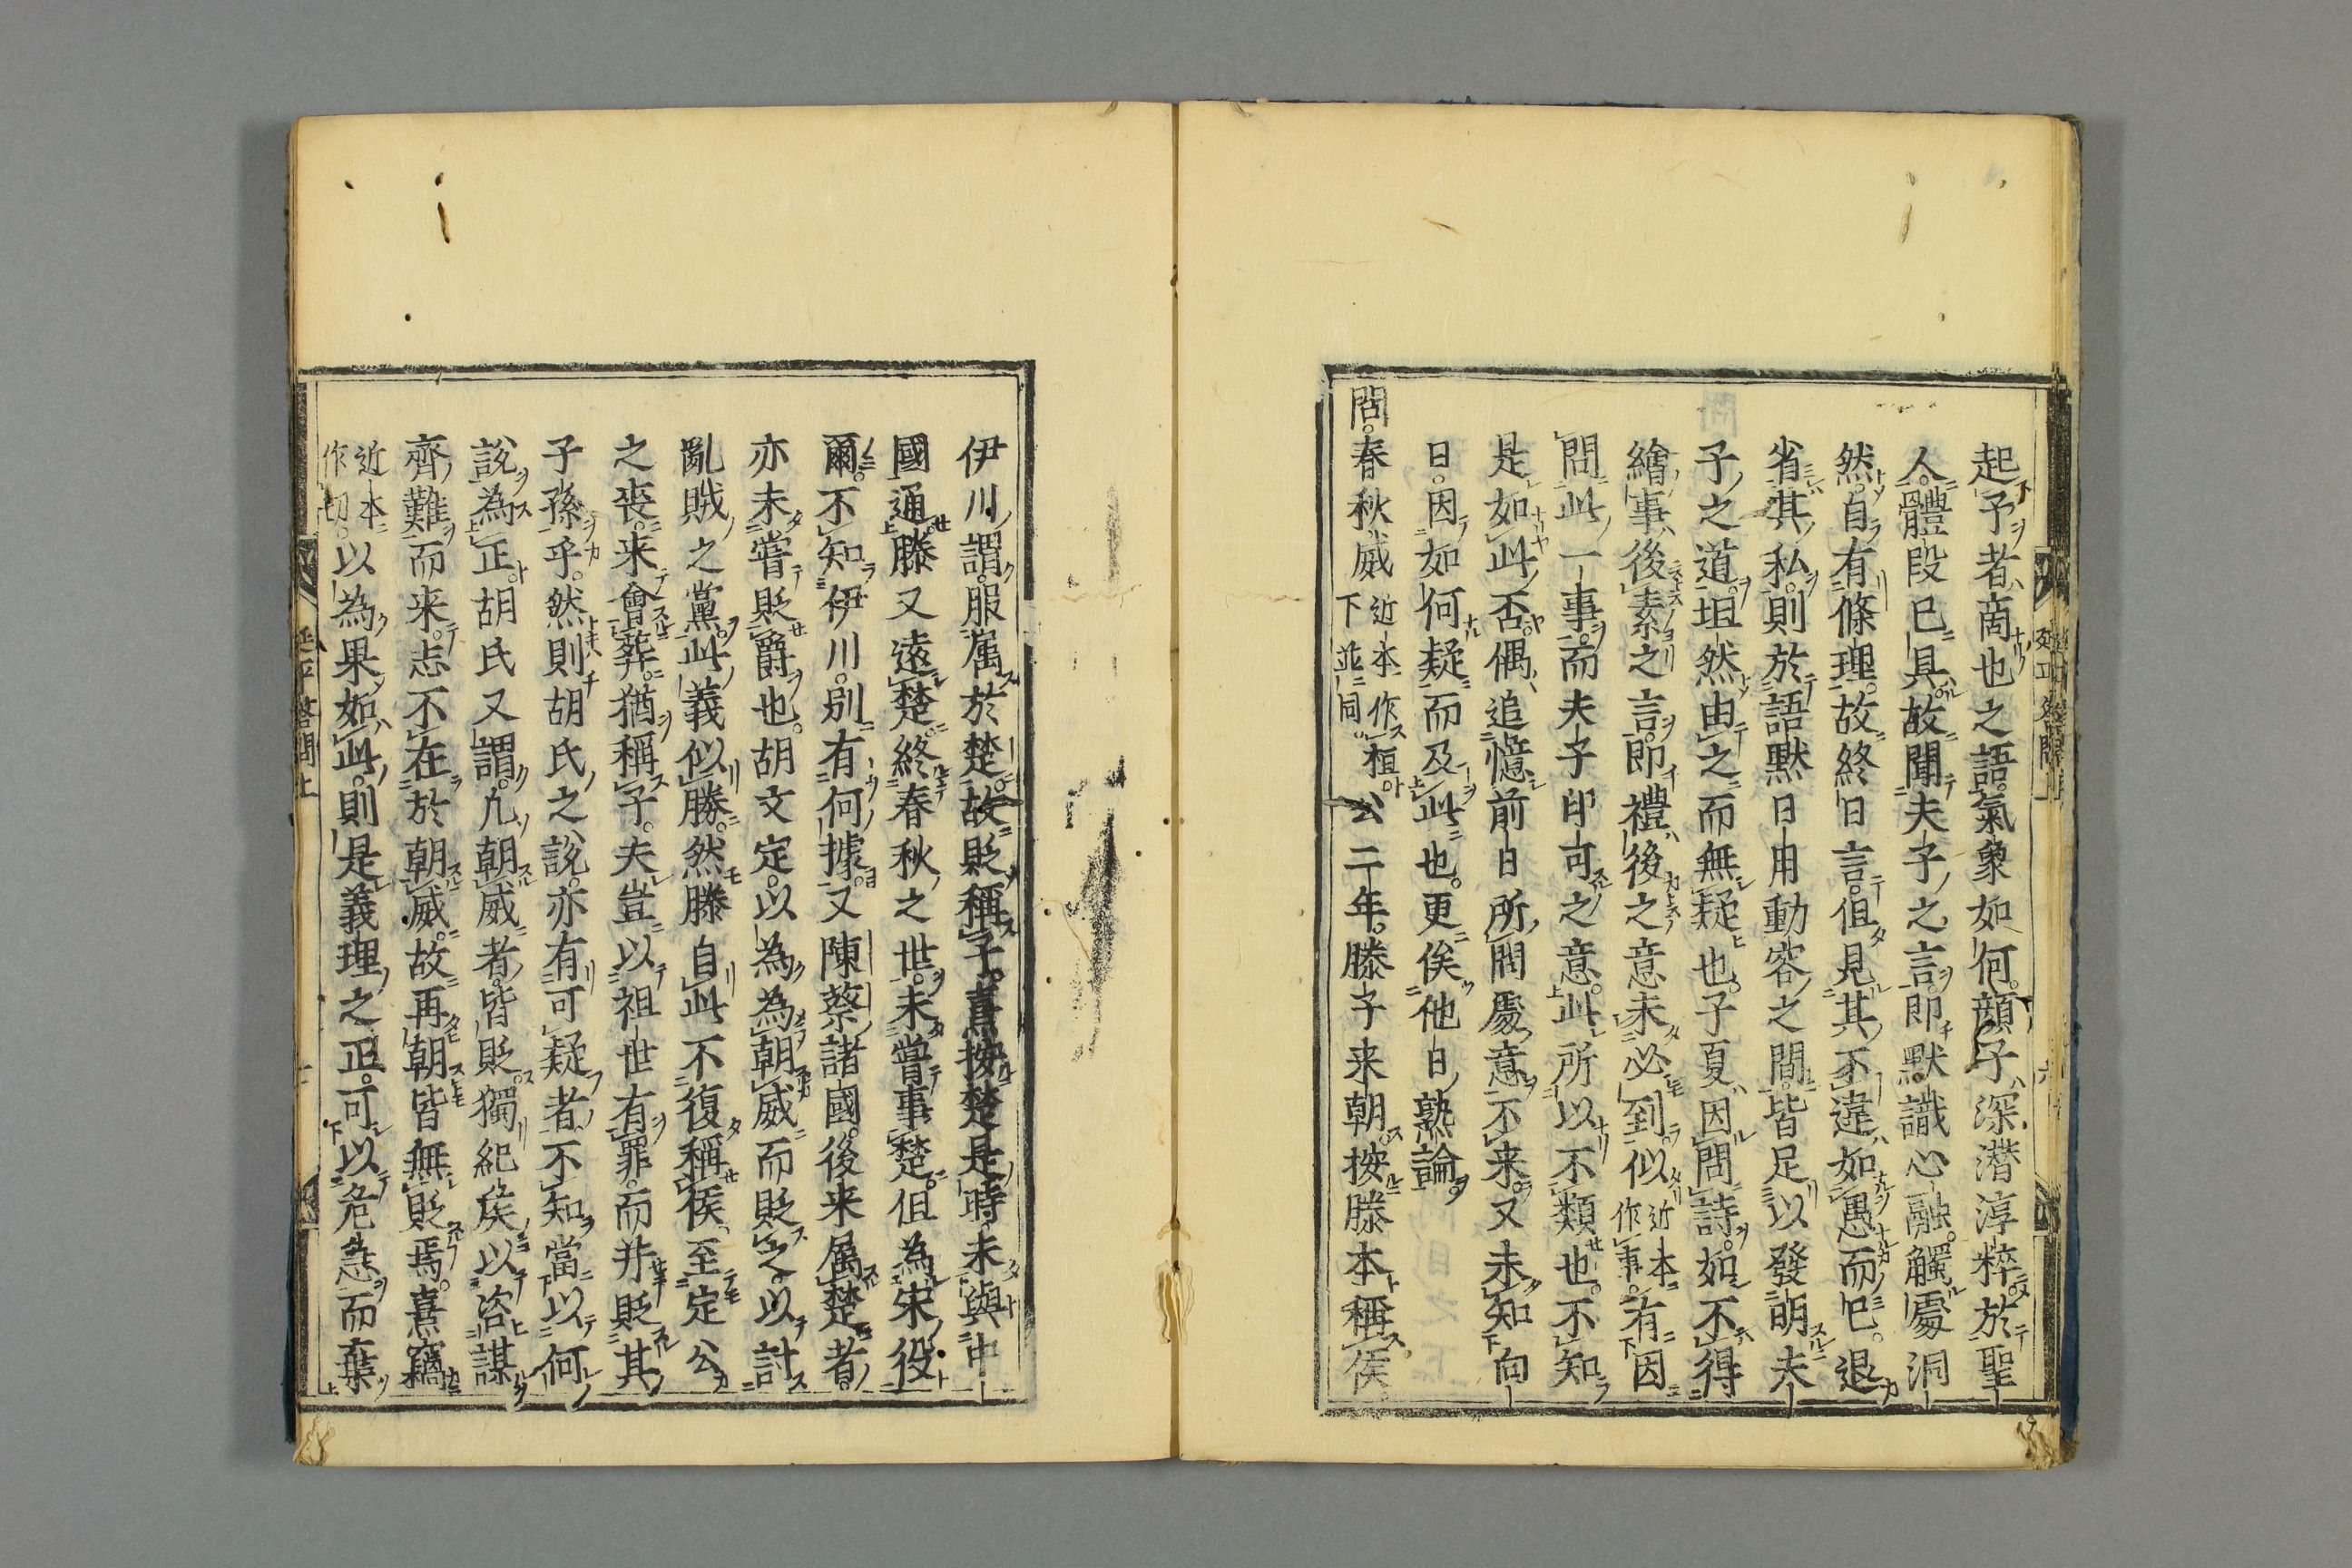 起予者商也之語氣象如何顔子深潜淳粹於聖
人體段已具故聞夫子之言即默識心融觸處洞
然自有條理故終日言但見其不違如愚而已退
省其私則於語默日用動容之間皆足以發明夫
子之道坦然由之而無疑也子夏因問詩如不得
繪事後素之言即禮後之意未必到似近本作事有因
問此一事而夫子印可之意此所以不類也不知
是如此否偶追憶前日所問處意不来又未知向
日因如何疑而及此也更俟他日熟論
問春秋威近本作桓下並同公二年滕子来朝按滕本稱侯
伊川謂服属於楚故貶稱子熹按楚是時未與中
國通滕又遠楚終春秋之世未嘗事楚但為宋役
爾不知伊川別有何據又陳蔡諸國後来属楚者
亦未嘗貶爵也胡文定以為為朝威而貶之以討
亂賊之黨此義似勝然滕自此不復稱侯至定公
之喪来會葬猶稱子夫豈以祖世有罪而并貶其
子孫乎然則胡氏之說亦有可疑者不知當以何
說為正胡氏又謂凡朝威者皆貶獨紀侯以咨謀
齊難而来志不在於朝威故再朝皆無貶焉熹竊
近本作切以為果如此則是義理之正可以危急而棄
延平答問上